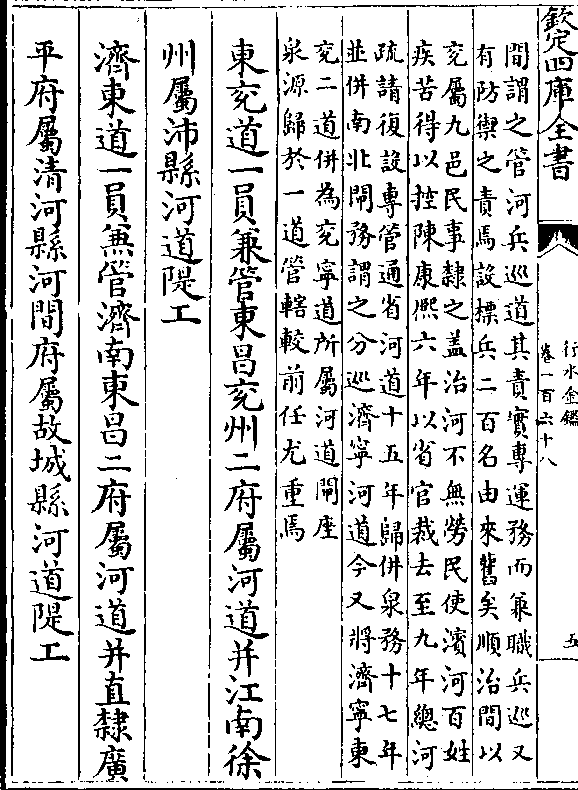 欽定四庫全書
行水金鑑
卷一百六十八
五
間謂之管河兵巡道其責實專運務而兼職兵巡又
有防禦之責焉設標兵二百名由來舊矣順治間以
兗屬九邑民事隸之盖治河不無勞民使濱河百姓
疾苦得以控陳康熙六年以省官裁去至九年總河
疏請復設專管通省河道十五年歸併泉務十七年
並併南北閘務謂之分巡濟寧河道今又將濟寧東
兗二道併為兗寧道所屬河道閘座
泉源歸於一道管轄較前任尤重焉
東兗道一員兼管東昌兗州二府屬河道并江南徐
州屬沛縣河道隄工
濟東道一員兼管濟南東昌二府屬河道并直隸廣
平府屬清河縣河間府屬故城縣河道隄工